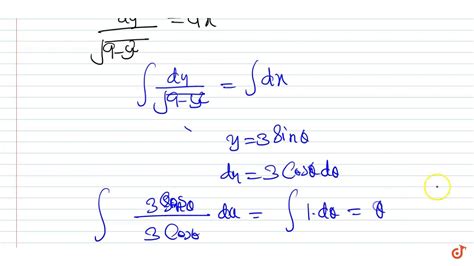 dy/√(9-y²) = dx
∫ dy/√(9-y²) = ∫dx
y = 3 Sinθ
dy = 3 Cosθ dθ
∫ 3 Cosθ/3 Cosθ dθ = ∫ 1·dθ = θ